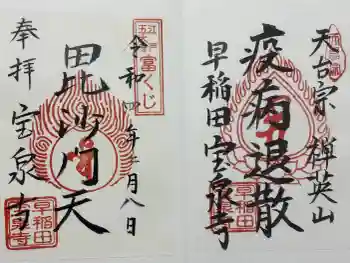 天台宗 禅英山
疫病退散
早稲田 宝泉寺
令和四年二月八日
毘沙門天
奉拝 宝泉寺
富くじ
早稲田
宝泉寺
早稲田
宝泉寺